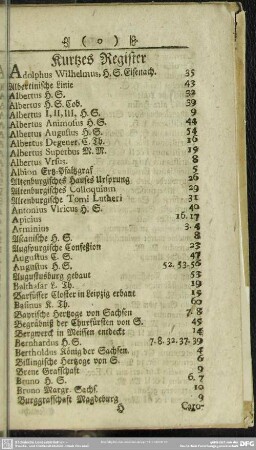 ( 0 )
Kurtzes Register
Adolphus Wilhelmus, H. S. Eisenach. 35
Albertinische Linie 43
Albertus H. S. 32
Albertus H. S. Cob. 39
Albertus I, II, III, H. S. 9
Albertus Animosus H. S. 44
Albertus Augustus H. S. 54
Albertus Degener. L. Th. 16
Albertus Superbus M. M. 19
Albertus Ursus. 8
Albion Ertz-Pfaltzgraf 5
Altenburgisches Hauses Ursprung 26
Altenburgisches Colloquium 29
Altenburgische Tomi Lutheri 31
Antonius Viricus H. S. 40
Apicius 16. 17
Arminius 3. 4
Ascanische H. S. 8
Augspurgische Confeßion 23
Augustus C. S. 47
Augustus H. S. 52. 53. 56
Augustusburg gebaut 53
Balthasar L. Th. 19
Barfüsser Closter in Leipzig erbaut 15
Basinus K. Th. 60
Bayrische Hertzoge von Sachsen 7. 8
Begräbniß der Churfürsten von S. 45
Bergwerck in Meissen entdeckt 14
Bernhardus H. S. 7. 8. 32. 37. 39
Bertholdus König der Sachsen. 4
Billingische Hertzoge von S. 6
Brene Graffschaft 9
Bruno H. S. 6. 7
Bruno Margr. Sachs. 10
Burggrafschaft Magdeburg 9
Caro-